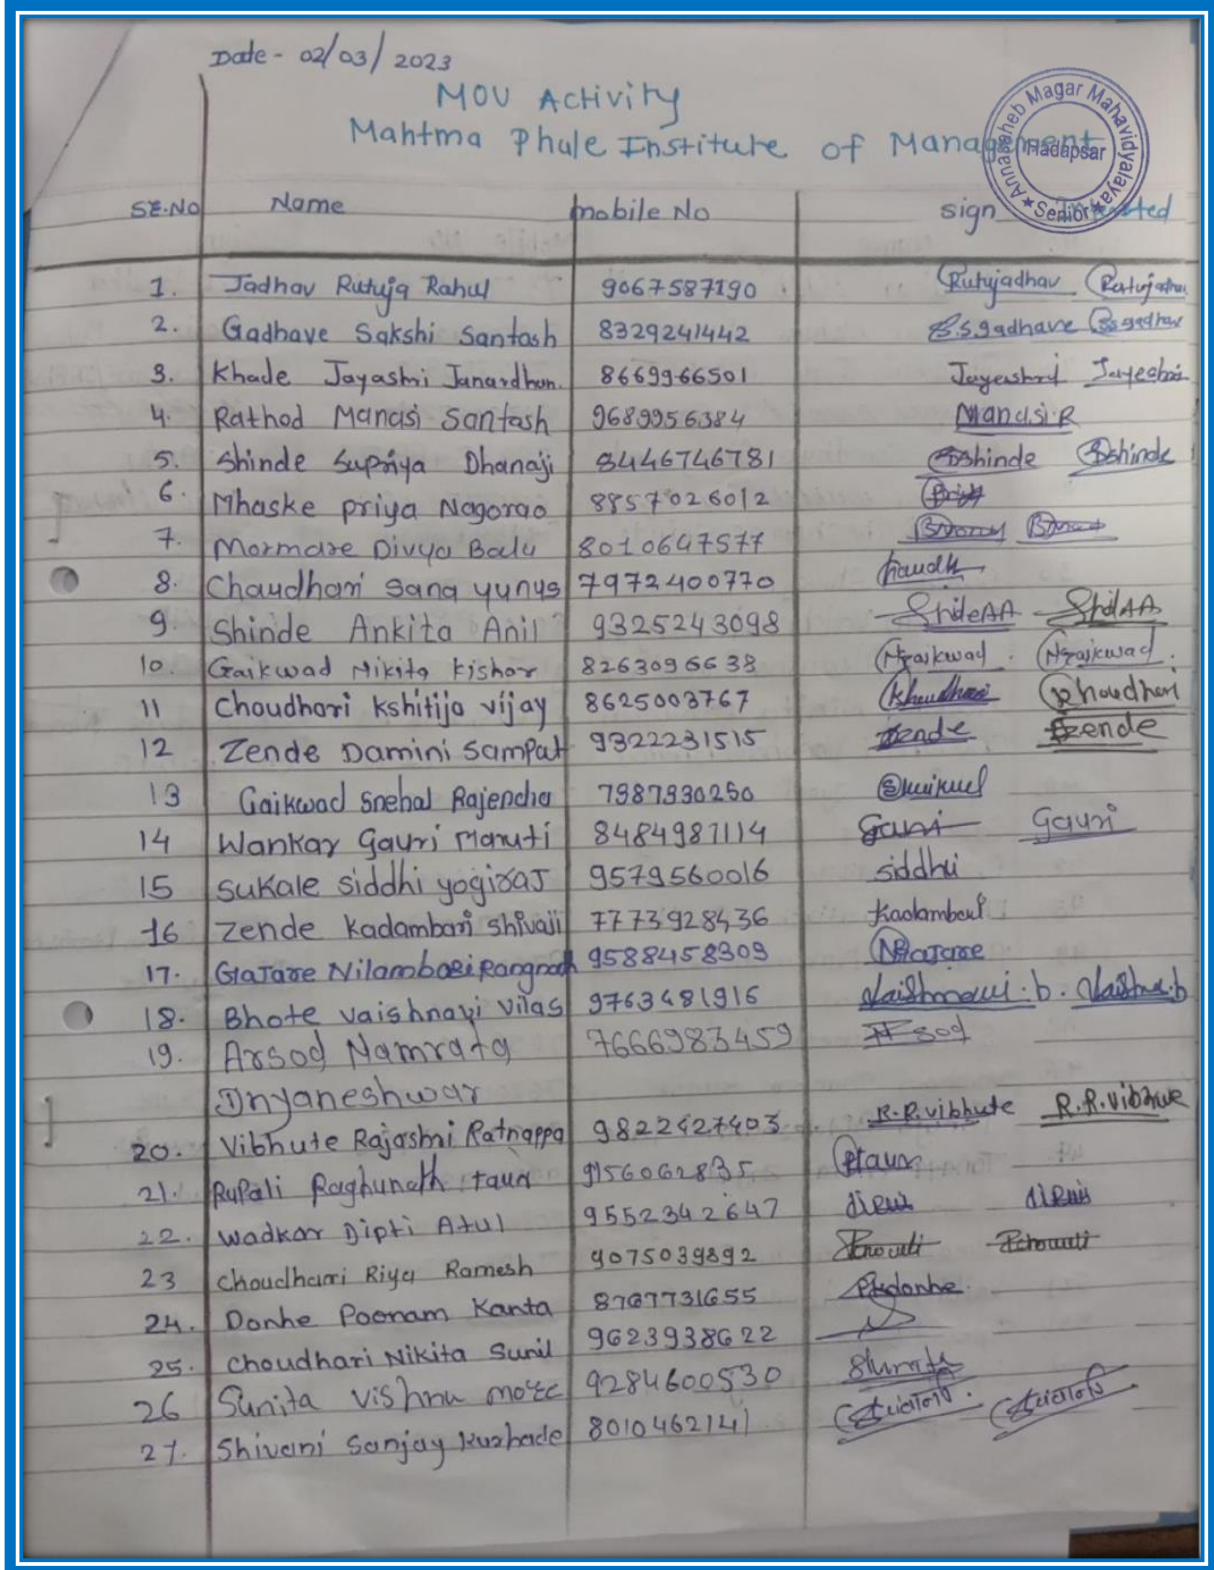 Date - 02/03/2023
MOU Activity
Mahtma Phule Institute of Management
Annasaheb Magar Mahavidyalaya
Hadapsar
Senior
SE.NO Name mobile No sign
1. Jadhav Rutuja Rahul 9067587190 Rutujadhav
2. Gadhave Sakshi Santosh 8329241442 S.S.gadhave
3. Khade Jayashri Janardhan. 8669966501 Jayashri
4. Rathod Manasi Santosh 9689956384 Manasi.R
5. Shinde Supriya Dhanaji 8446746781 Shinde Shinde
6. Mhaske priya Nagorao 8857026012
7. Mormare Divya Balu 8010647577
8. Chaudhari Sana yunus 7972400770
9. Shinde Ankita Anil 9325243098
10. Gaikwad Nikita Kishor 8263096638 Ngaikwad. Ngaikwad.
11 Choudhari Kshitija vijay 8625003767 Khoudhari
12 Zende Damini Sampat 9322231515 Zende Zende
13 Gaikwad Snehal Rajendra 7987930250
14 Wankar Gauri Maruti 8484987114 Gauri Gauri
15 Sukale Siddhi yogiraj 9579560016 siddhi
16 Zende Kadambari Shivaji 7773928436 Kadambari
17. Gajare Nilambari Rangnath 9588458309 NGajare
18. Bhote vaishnavi Vilas 9763481916 Vaishnavi.b.
19. Arsod Namrata 7666983459
Dnyaneshwar
20. Vibhute Rajashri Ratnappa 9822427403 R.R.vibhute R.R.vibhute
21. Rupali Raghunath taur 9156062835 Rtaur
22. Wadkar Dipti Atul 9552342647
23 Choudhari Riya Ramesh 9075039892
24. Donhe Poonam Kanta 8767731655 Pkdonhe.
25. Choudhari Nikita Sunil 9623938622
26 Sunita Vishnu more 9284600530
27. Shivani Sanjay Kurhade 8010462141